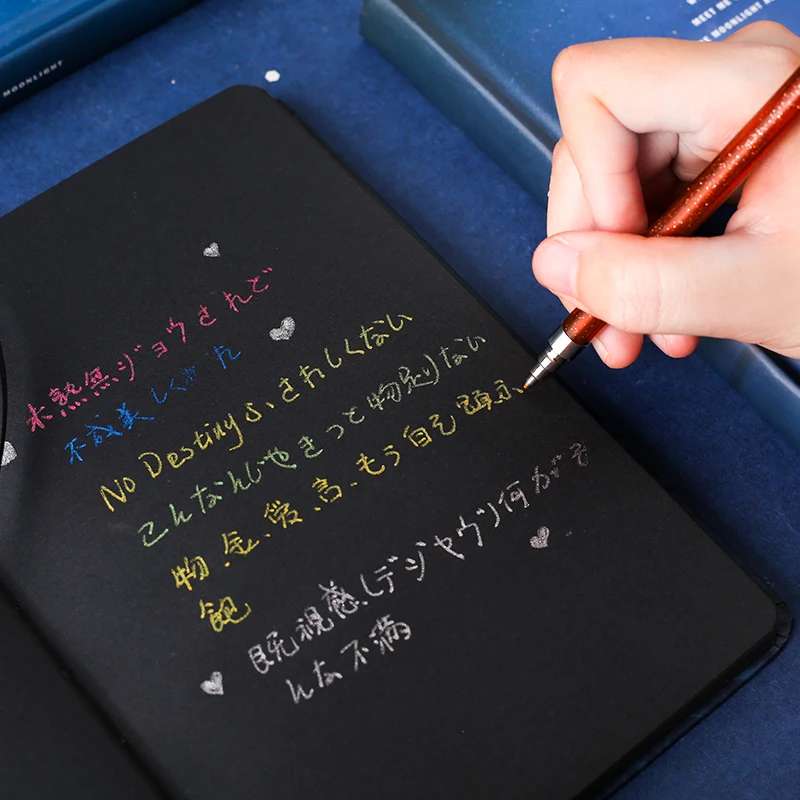 MOONLIGHT
MEET ME
THE MOONLIGHT
未熟無ジョウされど
不成美しくあれ
No Destiny ふ、されしくない
こんなんじゃきっと物足りない
物、金、愛、言、もう自己顕示、
飽
既視感しデジャヴッ何がそ
んな不満